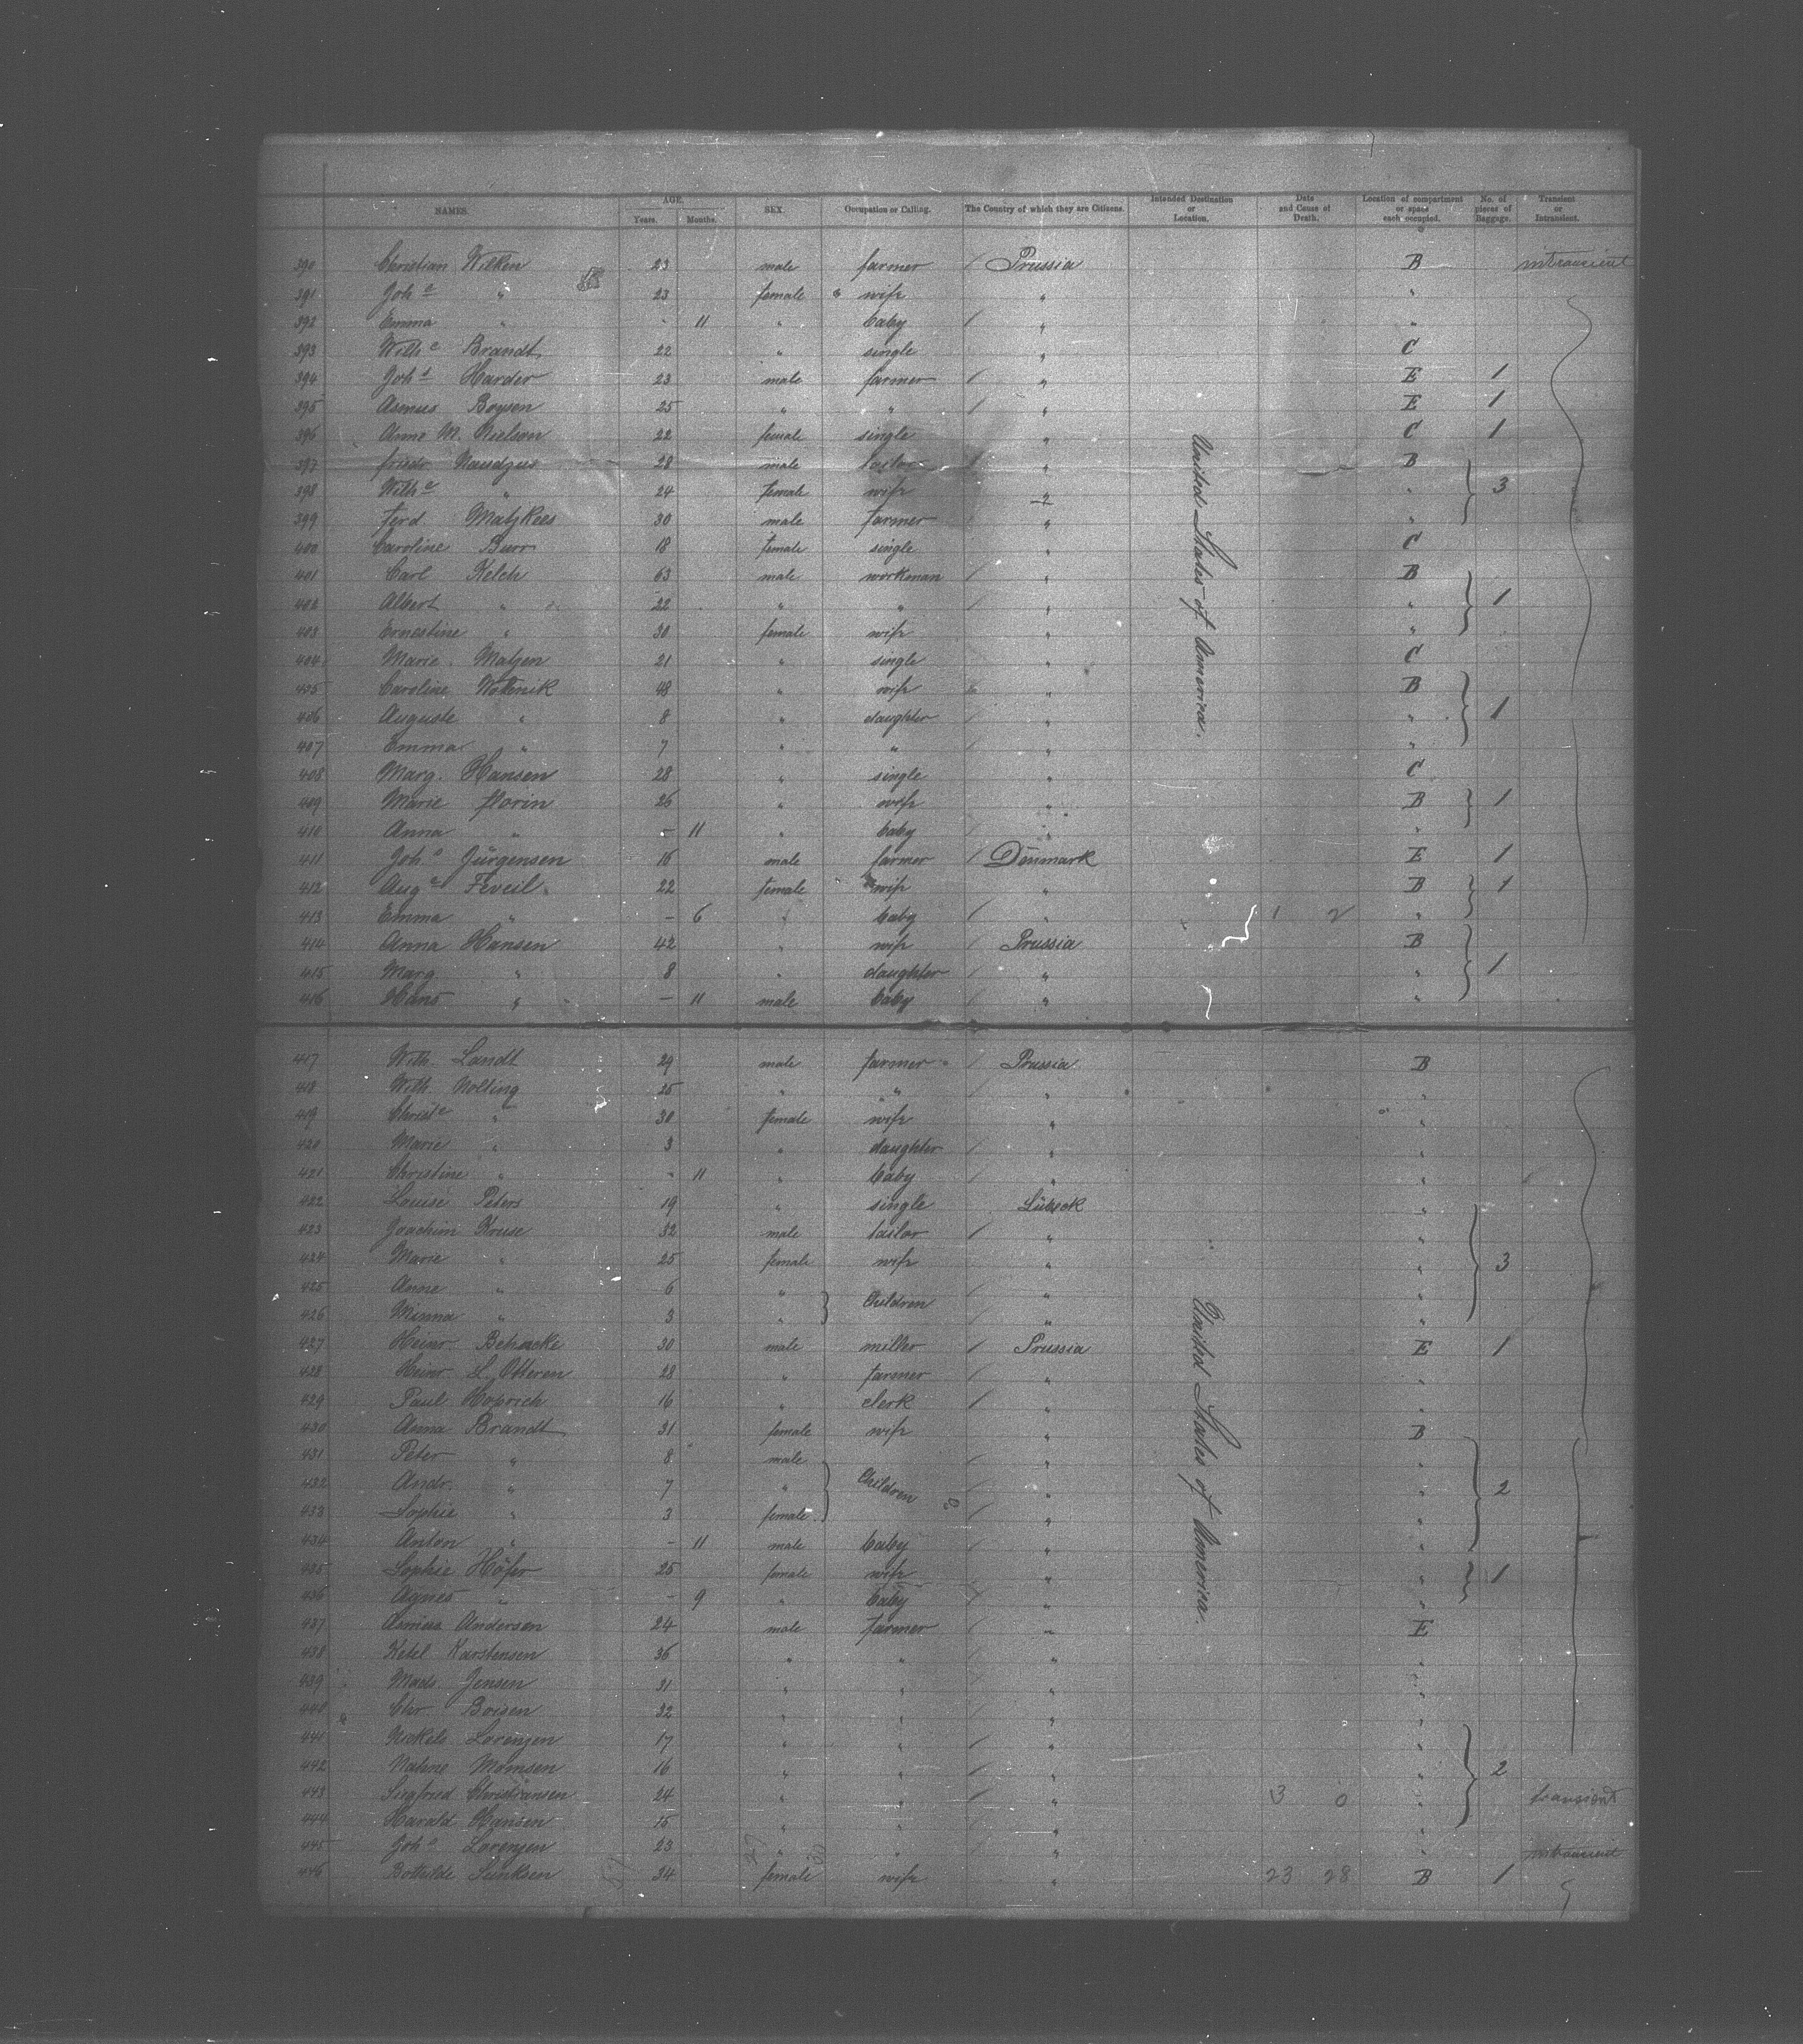 NAMES. AGE. Years. Months. SEX. Occupation or Calling. The Country of which they are Citizens. Intended Destination or Location. Date and Cause of Death. Location of compartment or space each occupied. No. of pieces of Baggage. Transient or Intransient.
390 Christian Wilken 23 male farmer Prussia B intransient
391 Joh.e " 23 female " wife " "
392 Emma " - 11 " baby " "
393 Wilh.e Brandt 22 " single " C
394 Joh.s Harder 23 male farmer " E 1
395 Asmus Boysen 25 " " " E 1
396 Anne M. Nielsen 22 female single " C 1
397 Friedr. 28 male tailor " B
398 Wilh.e " 24 female wife " " 3
399 Ferd 30 male farmer " "
400 Caroline Burr 18 female single " C
401 Carl Kelch 63 male workman " B
402 Albert " 22 " " " " 1
403 Ernestine " 30 female wife " "
404 Marie Matzen 21 " single " C
405 Caroline 48 " wife " B
406 Auguste " 8 " daughter " " 1
407 Emma " 7 " " " "
408 Marg. Hansen 28 " single " C
409 Marie Florin 26 " wife " B 1
410 Anna " - 11 " baby " "
411 Joh.s Jürgensen 16 male farmer Denmark E 1
412 Aug.e 22 female wife " B 1
413 Emma " - 6 " baby " 1 2 "
414 Anna Hansen 42 " wife Prussia B
415 Marg " 8 " daughter " " 1
416 Hans " - 11 male baby " "
United States of America.
417 Wilh. Landt 29 male farmer Prussia B
418 Wilh. Nolting 25 " " " "
419 Christ.e " 30 female wife " "
420 Marie " 3 " daughter " "
421 Christine " - 11 " baby " "
422 Louise Peters 19 " single Lübeck "
423 Joachim Kruse 32 male tailor " "
424 Marie " 25 female wife " " 3
425 Anne " 6 " Children " "
426 Minna " 3 " " "
427 Heinr. 30 male miller Prussia E 1
428 Heinr. 28 " farmer " "
429 Paul 16 " clerk " "
430 Anna Brandt 31 female wife " B
431 Peter " 8 male " "
432 Andr. " 7 " Children " " 2
433 Sophie " 3 female " "
434 Anton " - 11 male baby " "
435 Sophie Höfer 25 female wife " " 1
436 Agnes " - 9 " baby " "
437 Asmus Andersen 24 male farmer " E
438 Ketel Karstensen 36 " " " "
439 Mads Jensen 31 " " " "
440 Chr. Boisen 32 " " " "
441 Lorenzen 17 " " " "
442 Momsen 16 " " " " 2
443 Siegfried Christiansen 24 " " " 3 0 " transient
444 Harald Hansen 15 " " " "
445 Joh.s Lorenzen 23 " " " " intransient
446 34 female wife " 23 28 B 1
United States of America.